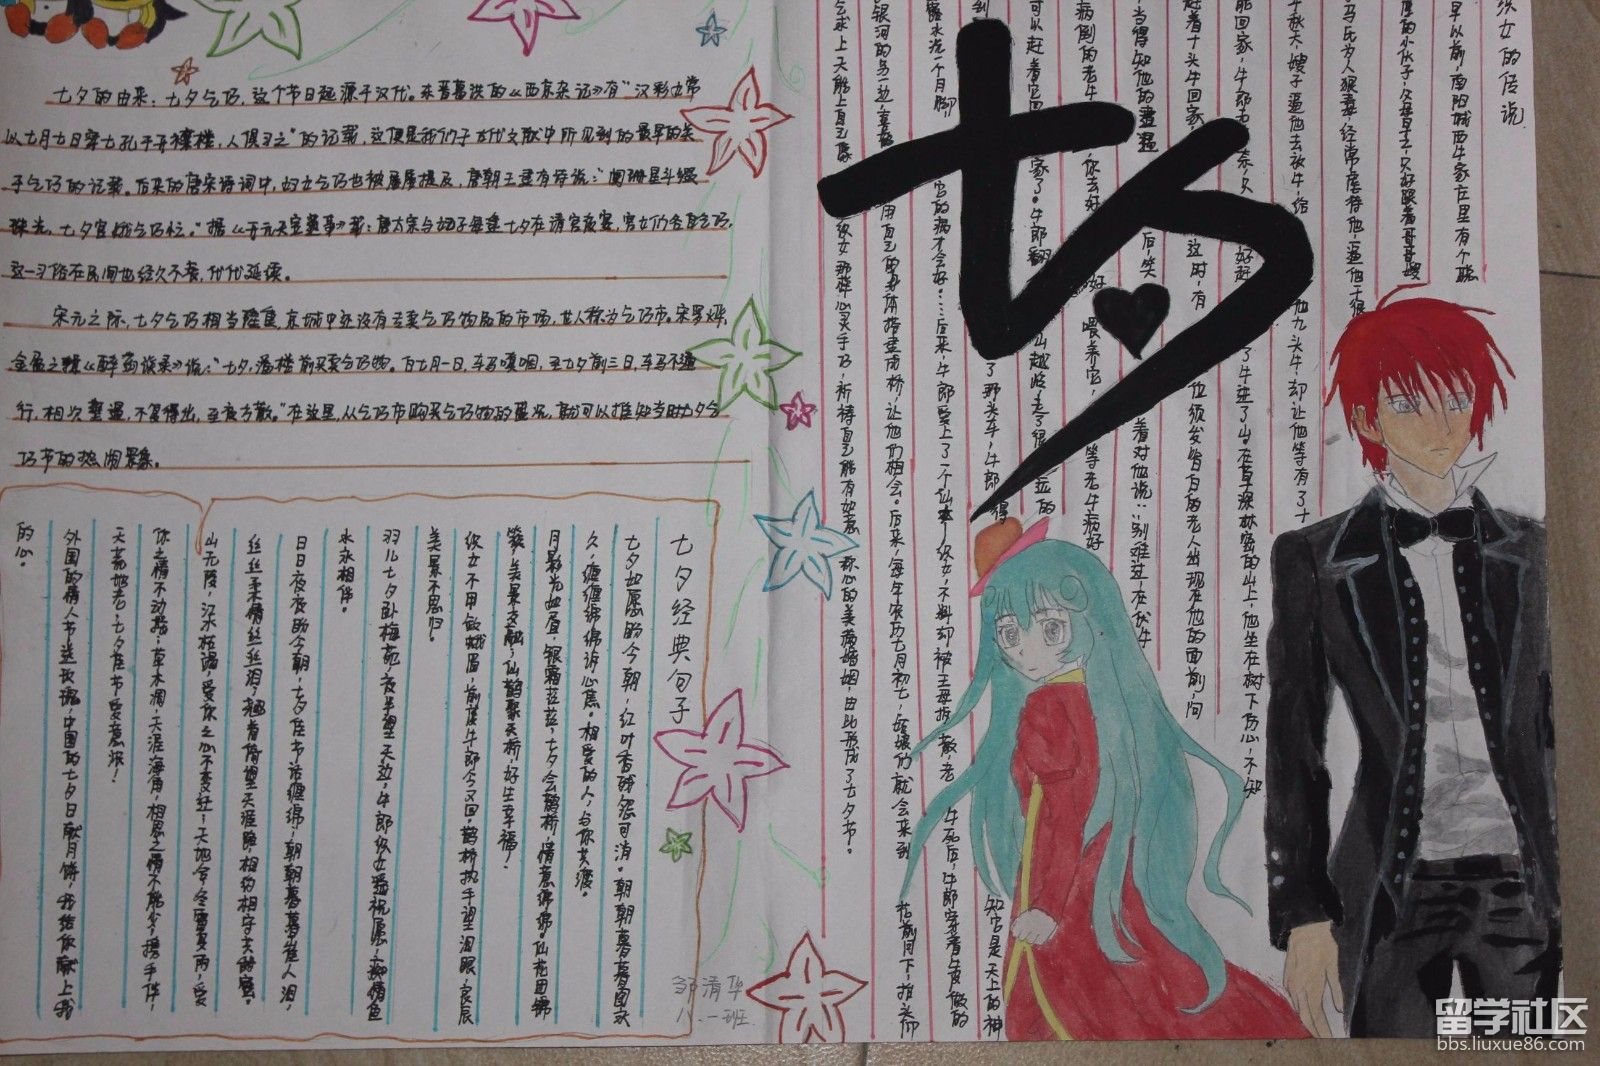 七夕的由来：七夕乞巧，这个节日起源于汉代。东晋葛洪的《西京杂记》有"汉彩女常
以七月七日穿七孔于开襟楼，人俱习之"的记载，这便是我们于古代文献中所见到的最早的关
于乞巧的记载。后来的唐宋诗词中，妇女乞巧也被屡屡提及，唐朝王建有诗说："阑珊星斗缀
珠光，七夕宫娥乞巧忙。"据《开元天宝遗事》载：唐太宗与妃子每逢七夕在清宫夜宴，宫女们各自乞巧，
这一习俗在民间也经久不衰，代代延续。
宋元之际，七夕乞巧相当隆重，京城中还设有专卖乞巧物品的市场，世人称为乞巧市。宋罗烨，
金盈之辑《醉翁谈录》说："七夕，潘楼前买卖乞巧物。自七月一日，车马嗔咽，至七夕前三日，车马不通
行，相次壅遏，不复得出，至夜方散。"在这里，从乞巧市购买乞巧物的盛况，就可以推知当时七夕乞
巧节的热闹景象。
七夕经典句子
七夕如愿盼今朝，红叶香残怨可消。朝朝暮暮图永
久，缠缠绵绵诉心焦。相爱的人，与你共渡。
月影光如眉，银霜茫茫，七夕会鹊桥，情意绵绵。仙花团锦
簇，美景交融，仙鹤聚天桥，好生幸福！
织女不用敛蛾眉，前渡牛郎今又回。鹊桥执手望泪眼，良辰
美景不思归。
羽儿七夕卧梅苑，夜半望天边，牛郎织女受祝愿，痴情鱼
水永相伴。
日日夜夜盼今朝，七夕佳节话缠绵，朝朝暮暮催人泪，
丝丝柔情丝丝泪，翘首倚望天涯路，相约相守共醉宴。
山无陵，江水枯竭，爱你之心不变迁；天地合，冬雷夏雨，爱
你之情不动摇；草木凋，天涯海角，相思之情不能少；携手伴，
天荒地老，七夕佳节爱意浓！
外国的情人节送玫瑰，中国的七夕日献月饼，我给你献上我
的心。
邹清华
八.一班
七夕
织女的传说
早以前，南阳城西牛家庄里有个聪
厚的小伙子，父母早亡，只好跟着哥哥嫂
马氏为人狠毒，经常虐待他，逼他干很
年秋天，嫂子逼他去放牛，给
他九头牛，却让他等有了十
赶着十头牛回家，
能回家，牛郎无奈只好赶
了牛进了山。在草深林密的山上，他坐在树下伤心，不知
这时，有
位须发皆白的老人出现在他的面前，问
当得知他的遭遇
后，笑
着对他说：别难过，在伏牛
病倒的老牛
你去好好喂养它，
等老牛病好
可以赶着它回家了。牛郎翻
山越岭，走了很
远的
了那头牛，牛郎
得
知它是天上的神
露水洗一个月脚
宫的病才会好。……后来，牛郎爱上了一个仙女，织女，不料却被王母拆散，老牛死后，牛郎穿着牛皮做的
银河的另一边，喜鹊
用自己的身体搭建鹊桥，让他们相会。后来，每年农历七月初七，姑娘们就会来到
花前月下，抬头仰
会求上天能上自己像
织女那样心灵手巧，祈祷自己能有如意称心的美满婚姻，由此形成了七夕节。
留学社区
bbs.liuxue86.com